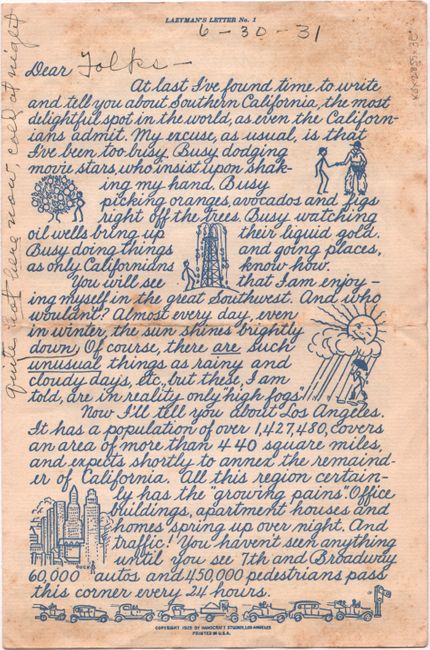 LAZYMAN'S LETTER No. 1
6-30-31
Dear Folks—
At last I've found time to write
and tell you about Southern California, the most
delightful spot in the world, as even the Californ-
ians admit. My excuse, as usual, is that
I've been too busy. Busy dodging
movie stars, who insist upon shak-
ing my hand, Busy
picking oranges, avocados and figs
right off the trees. Busy watching
oil wells bring up their liquid gold.
Busy doing things and going places,
as only Californians know how.
You will see that I am enjoy-
ing myself in the great Southwest. And who
wouldn't? Almost every day, even
in winter, the sun shines brightly
down. Of course, there are such
unusual things as rainy and
cloudy days, etc., but these, I am
told, are in reality only "high fogs"!
Now I'll tell you about Los Angeles.
It has a population of over 1,427,480, covers
an area of more than 440 square miles,
and expects shortly to annex the remaind-
er of California. All this region certain-
ly has the "growing pains". Office
buildings, apartment houses and
homes spring up over night. And
traffic! You haven't seen anything
until you see 7th and Broadway
60,000 autos and 450,000 pedestrians pass
this corner every 24 hours.
COPYRIGHT 1925 BY HANDCRAFT STUDIOS, LOS ANGELES
PRINTED IN U.S.A.
quite hot here now, cold at night